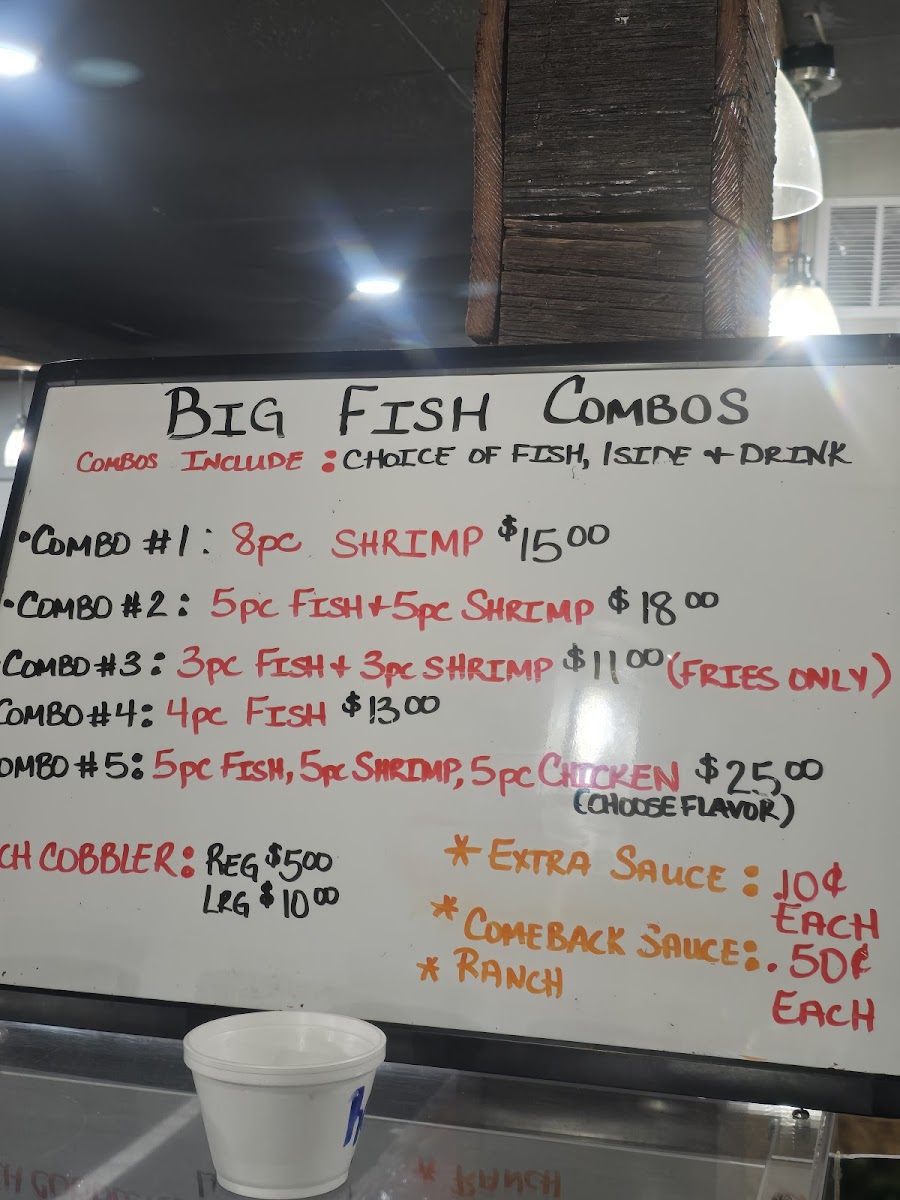 BIG FISH COMBOS
COMBOS INCLUDE : CHOICE OF FISH, 1 SIDE + DRINK
• COMBO #1 : 8pc SHRIMP $15 00
• COMBO #2 : 5pc FISH + 5pc SHRIMP $18 00
COMBO #3 : 3pc FISH + 3pc SHRIMP $11 00 (FRIES ONLY)
COMBO #4 : 4pc FISH $13 00
OMBO #5 : 5pc FISH, 5pc SHRIMP, 5pc CHICKEN $25.00
(CHOOSE FLAVOR)
CH COBBLER : REG $5 00
LRG $10 00
* EXTRA SAUCE : .10¢
EACH
* COMEBACK SAUCE : .50¢
* RANCH
EACH